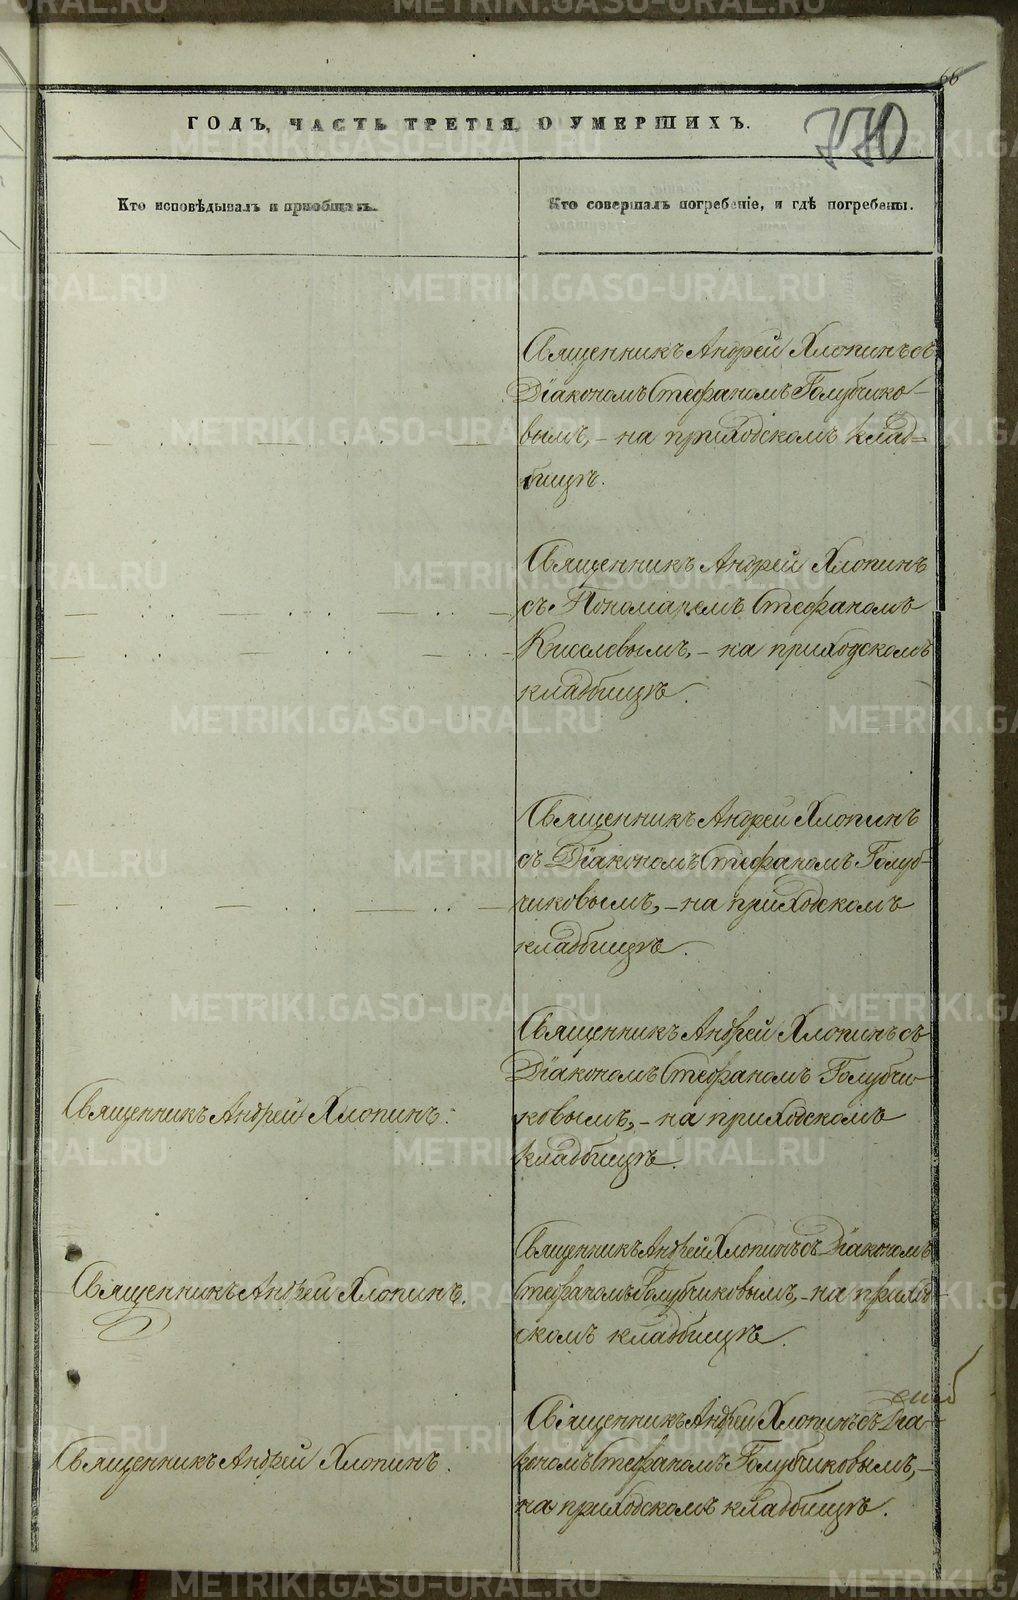 66
ГОДЪ, ЧАСТЬ ТРЕТІЯ, О УМЕРШИХЪ.
770
Кто исповѣдывалъ и пріобщалъ.
Кто совершалъ погребеніе, и гдѣ погребены.
Священникъ Андрей Хлопинъ съ
Діакономъ Стефаномъ Голубчико-
вымъ, - на приходскомъ клад-
бищѣ.
Священникъ Андрей Хлопинъ
съ Пономаремъ Стефаномъ
Киселевымъ, - на приходскомъ
кладбищѣ.
Священникъ Андрей Хлопинъ
съ Діакономъ Стефаномъ Голуб-
чиковымъ, - на приходскомъ
кладбищѣ.
Священникъ Андрей Хлопинъ.
Священникъ Андрей Хлопинъ съ
Діакономъ Стефаномъ Голубчи-
ковымъ, - на приходскомъ
кладбищѣ.
Священникъ Андрей Хлопинъ.
Священникъ Андрей Хлопинъ съ Діакономъ
Стефаномъ Голубчиковымъ, - на приход-
скомъ кладбищѣ.
Священникъ Андрей Хлопинъ.
Священникъ Андрей Хлопинъ съ Діа-
кономъ Стефаномъ Голубчиковымъ, -
на приходскомъ кладбищѣ.
METRIKI.GASO-URAL.RU